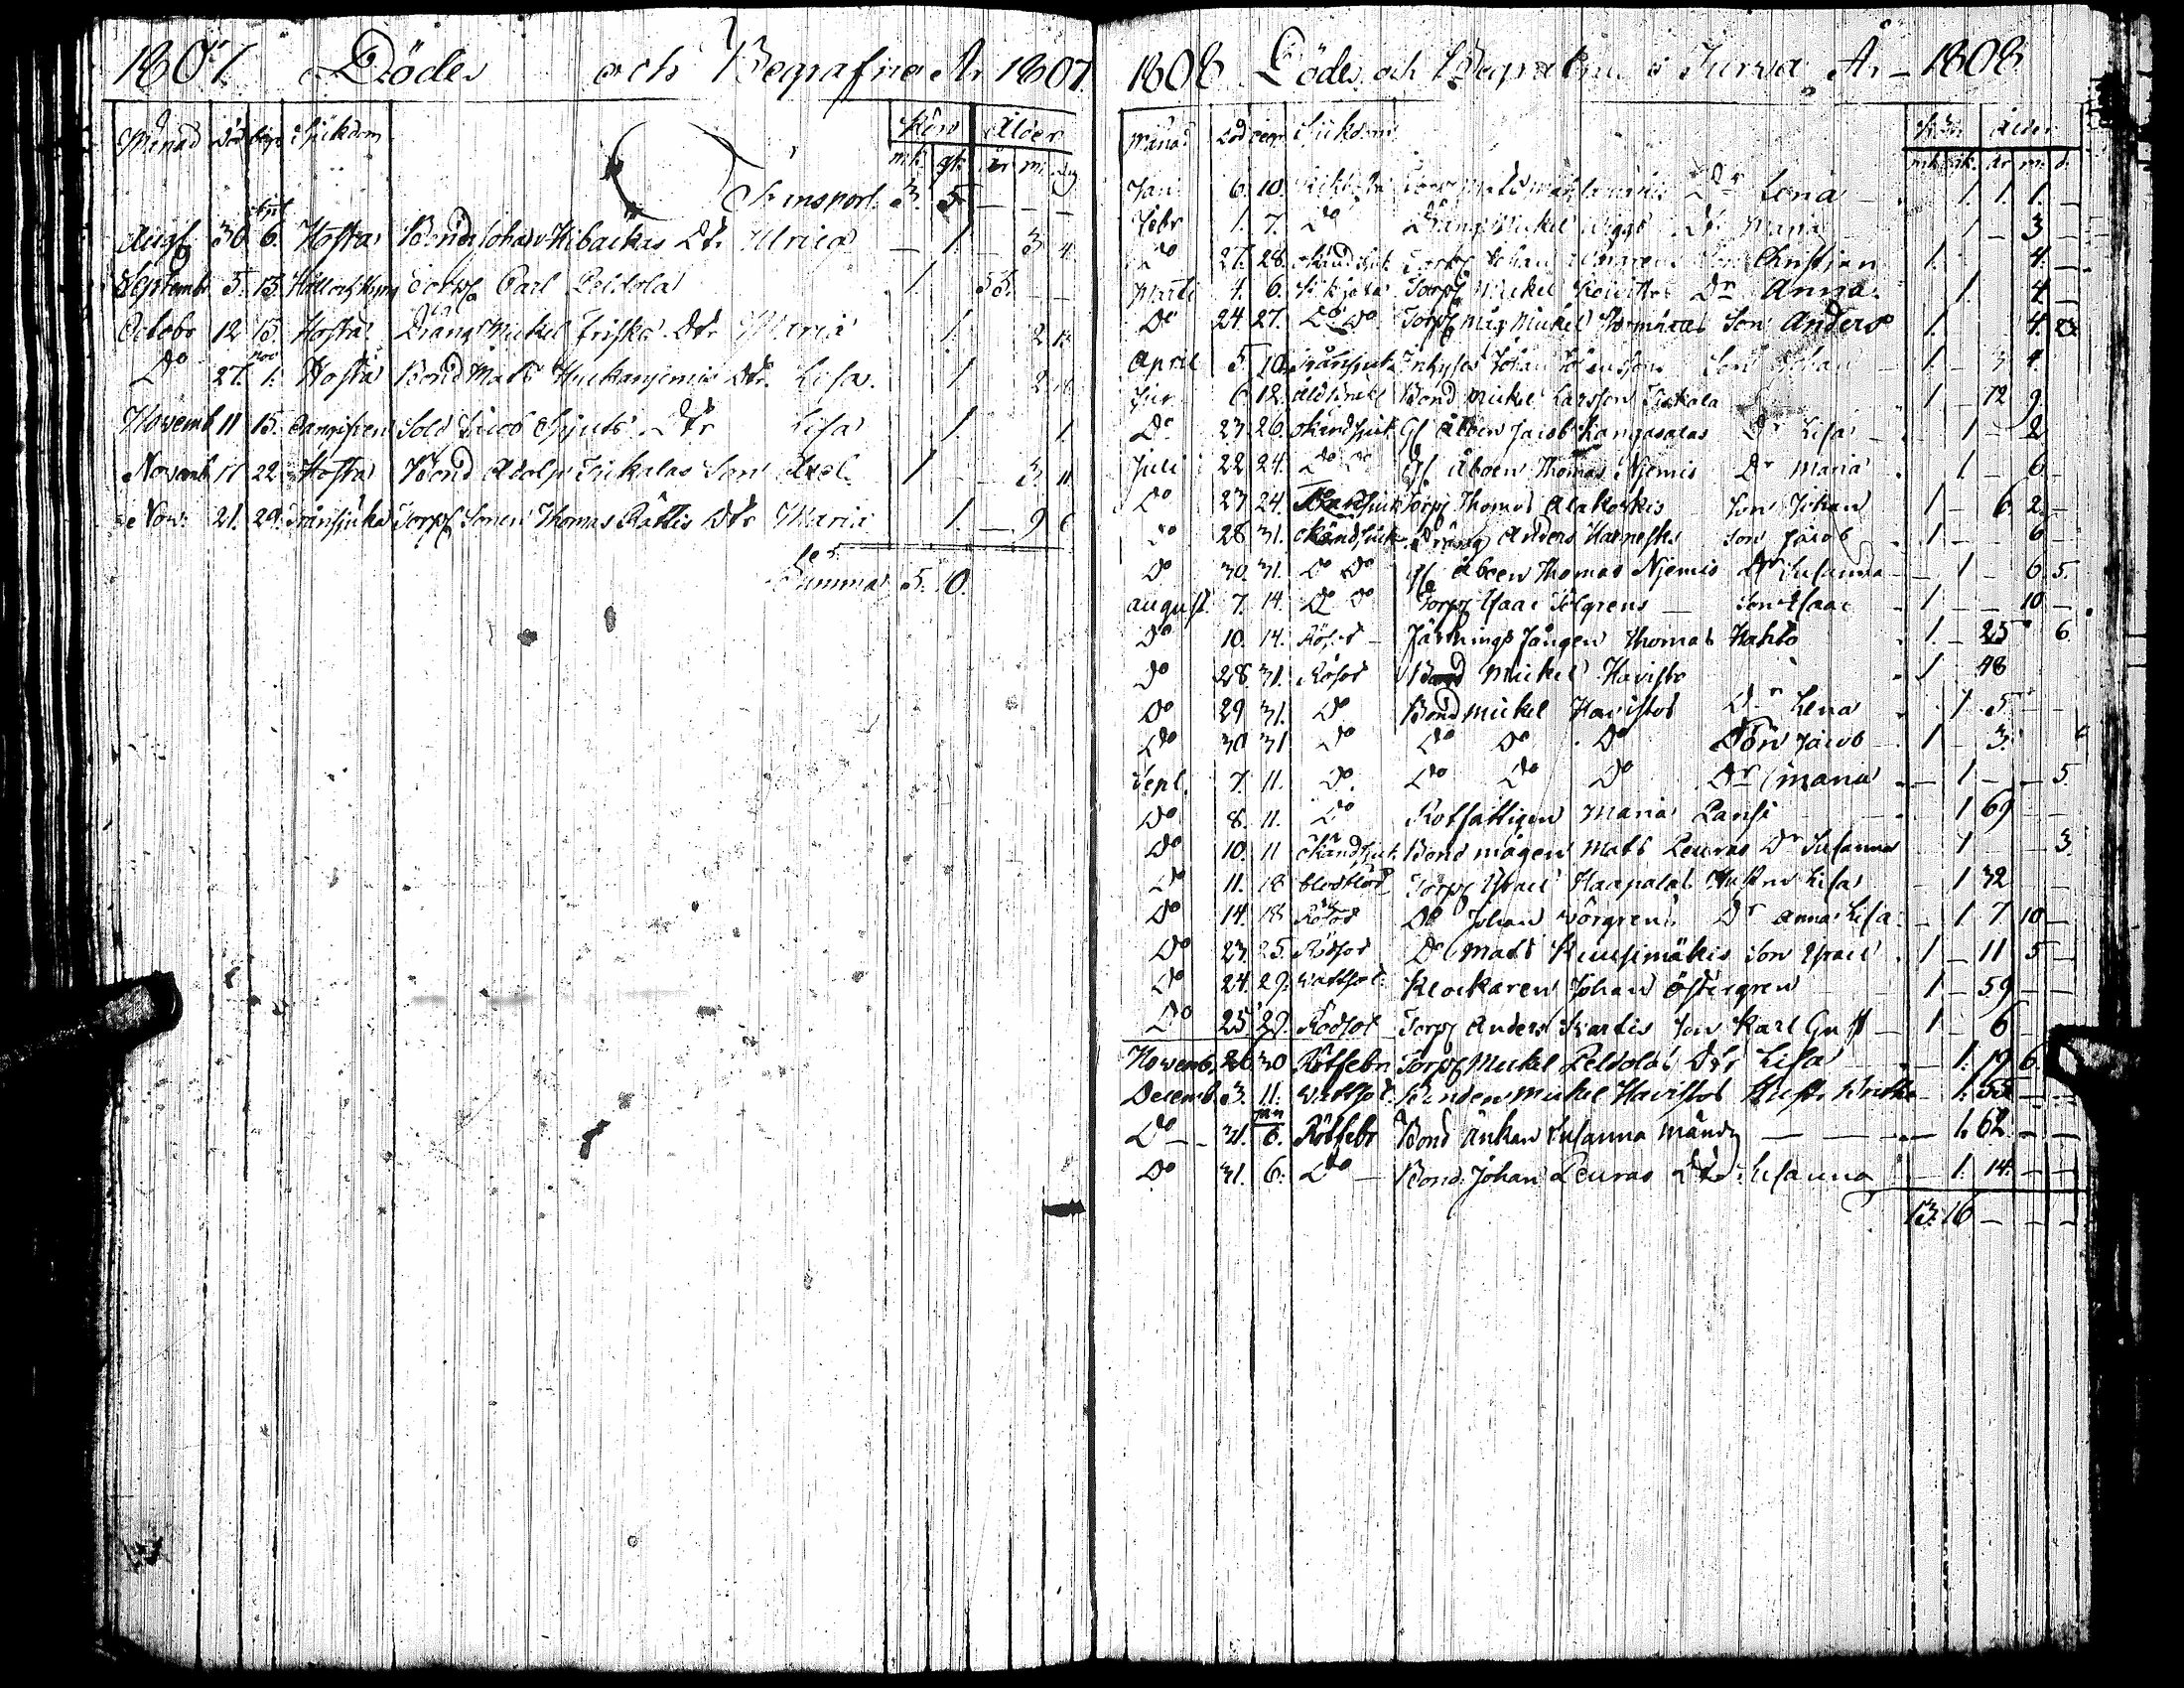 1807. Döde och Begrafne År 1807.
Månad Död begr Siukdom Kön Ålder
mk. qk. år m. dag
Transport. 3. 5 — — —
Sept
Aug 30 6. Hosta Bond Johan Kibackas Dtr Ulrica — 1. 3 4
Septemb. 5. 13. Håll och Styng Torp Carl Peldola 1. 53. — —
Octobr 12 15. Hosta Dräng Mickel Frisks Dtr Maria 1. 2 12
Nov
Do 27. 1. Hosta Bond Mats Dtr Lisa. 1 2 18
Novemb 11 15. Sold Jacob Spjuts Dtr Lisa 1. 1.
Novemb. 17 22 Hosta Bond Adolph Tiukalas Son Axel. 1 — — 3 11
Nov. 21. 29. Tränsjuka Torp Sonen Thomas Rättis Dtr Maria 1. — 9 6
Summa 5. 10.
1808 Döde och Begrafne i Jurva År — 1808
Månad Död begr Siukdom Kön Ålder
mk. qk. år m. d.
Jan 6. 10. Torp Mats Dr Lena — 1. 1. 1. —
Febr 1. 7. Do Dräng Mickel Wiggs Dr Maria 1 — 3 —
Do 27. 28. okänd siuk. Torp Johan Sörgrens Son Christian 1. 4. —
Marti 4. 6. Torp Mickel Dr Anna 1. 4 —
Do 24. 27. Do Do Torp måg Mickel Son Anders 1. 4. 23
April 5 10. Tränsiuk. Inhyses Johan Son Johan 1. — 3 4.
Jun 6 12. Bond Mickel Larsson Tiukala 1 — 72 9.
Do 23. 26. okänd siuk. Gl Åboen Jacob Kangasalas Dr Lisa — 1 — 2
Juli 22 24. Do Do Gl Åboen Thomas Njemis Dr Maria 1 — 6
Do 23 24. Torp Thomas Alakoskis Son Johan 1 — 6. 2. —
Do 28 31. okänd siuk. Dräng Anders Harnesks Son Jacob 1 — — 6 —
Do 30. 31. Do Do Gl Åboen Thomas Njemis Dr Susanna — 1 — 6. 5.
August. 7. 14. Do Do Torp Isaac Sölgrens — Son Isaac 1 — — 10 —
Do 10. 14. Rösot — Gossen Thomas Hahto 1. — 25 6
Do 28. 31. Rösot Bond Mickel Havisto 1 48
Do 29 31. Do Bond Mickel Havistos Dr Lena 1. 5 — —
Do 30 31 Do Do Do Do Son Jacob — 1 — 3.
Sept. 7. 11. Do. Do Do Do Dr Maria — 1 — — 5.
Do 8. 11. Do Rotfattigen Maria Pansi 1 69 — —
Do 10. 11 okänd siuk. Bond mågen Mats Peuras Dr Susanna 1 — — 3.
Do 11. 18 Torp Israel Haapalas Hustru Lisa — 1 32 —
Do 14. 18 Rösot Do Johan Sörgrens Dr Anna Lisa. — 1. 7 10 —
Do 23. 25. Rödsot Do Mats Kuusimäkis Son Israel 1 — 11 5 —
Do 24. 29. Wattsot. Klockaren Johan Östergren 1 — 59 — —
Do 25 29. Rödsot Torp Anders Son Karl Gust — 1 — 6 —
Novemb. 26 30 Rötfebr Torp Mickel Peldolas Dtr Lisa 1. 19 6.
Decemb. 3. 11. Wattsot. Bonden Mickel Havistos Hustr. — 1. 55 — —
jan
Do — — 31. 6. Rötfebr Bond Änkan Susanna — — — 1. 62. — —
Do 31. 6. Do — Bond. Johan Peuras Dtr: Susanna — 1. 14. — —
13. 16 — — —